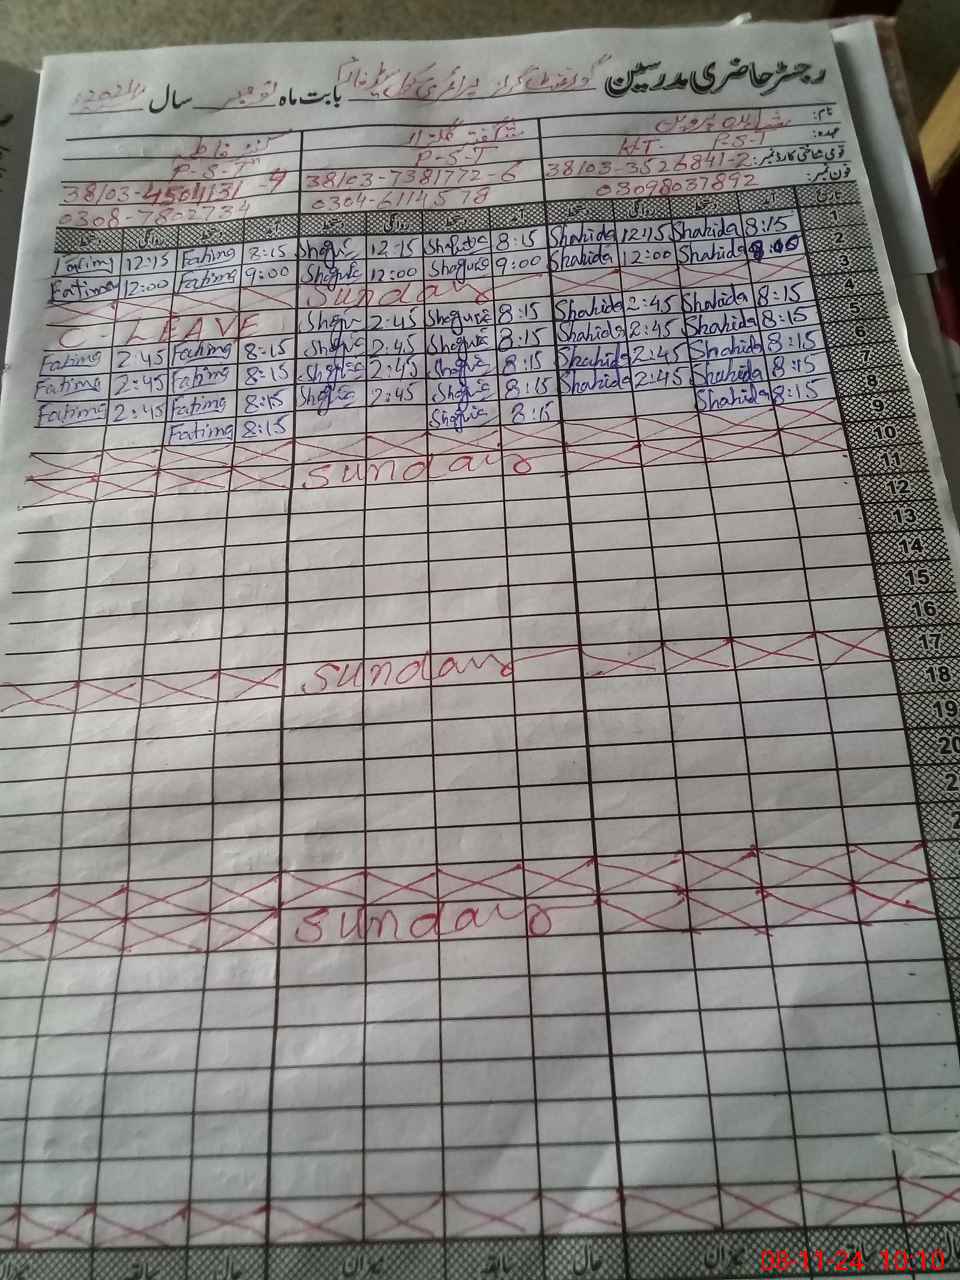 رجسٹر حاضری مدرسین گورنمنٹ گرلز پرائمری سکول بابت ماہ نومبر سال 2024ء
نام: شاہدہ پروین شگفتہ گلزار کنیز فاطمہ
عہدہ: P-S-T H-T- P-S-T P-S-T
قومی شناختی کارڈ نمبر: 38103-3526841-2 38103-7381772-6 38103-4504131-4
فون نمبر: 03098037892 0304-6114578 0308-7802734
تاریخ آمد دستخط روانگی دستخط آمد دستخط روانگی دستخط آمد دستخط روانگی دستخط
1 8:15 Shahida 12:15 Shahida 8:15 Shagufta 12:15 8:15 Fatima 12:15 Fatima
2 Shahida 12:00 Shahida 9:00 Shagufta 12:00 Shagufta 9:00 Fatima 12:00 Fatima
3 Sunday
4 8:15 Shahida 2:45 Shahida 8:15 Shagufta 2:45 C-LEAVE
5 8:15 Shahida 2:45 Shahida 8:15 Shagufta 2:45 8:15 Fatima 2:45 Fatima
6 8:15 Shahida 2:45 Shahida 8:15 2:45 8:15 Fatima 2:45 Fatima
7 8:15 Shahida 2:45 Shahida 8:15 2:45 8:15 Fatima 2:45 Fatima
8 8:15 Shahida 8:15 8:15 Fatima
9
10 Sunday
11
12
13
14
15
16
17 Sunday
18
19
20
Sunday
میزان سابقہ حال میزان سابقہ حال میزان
08-11-24 10:10